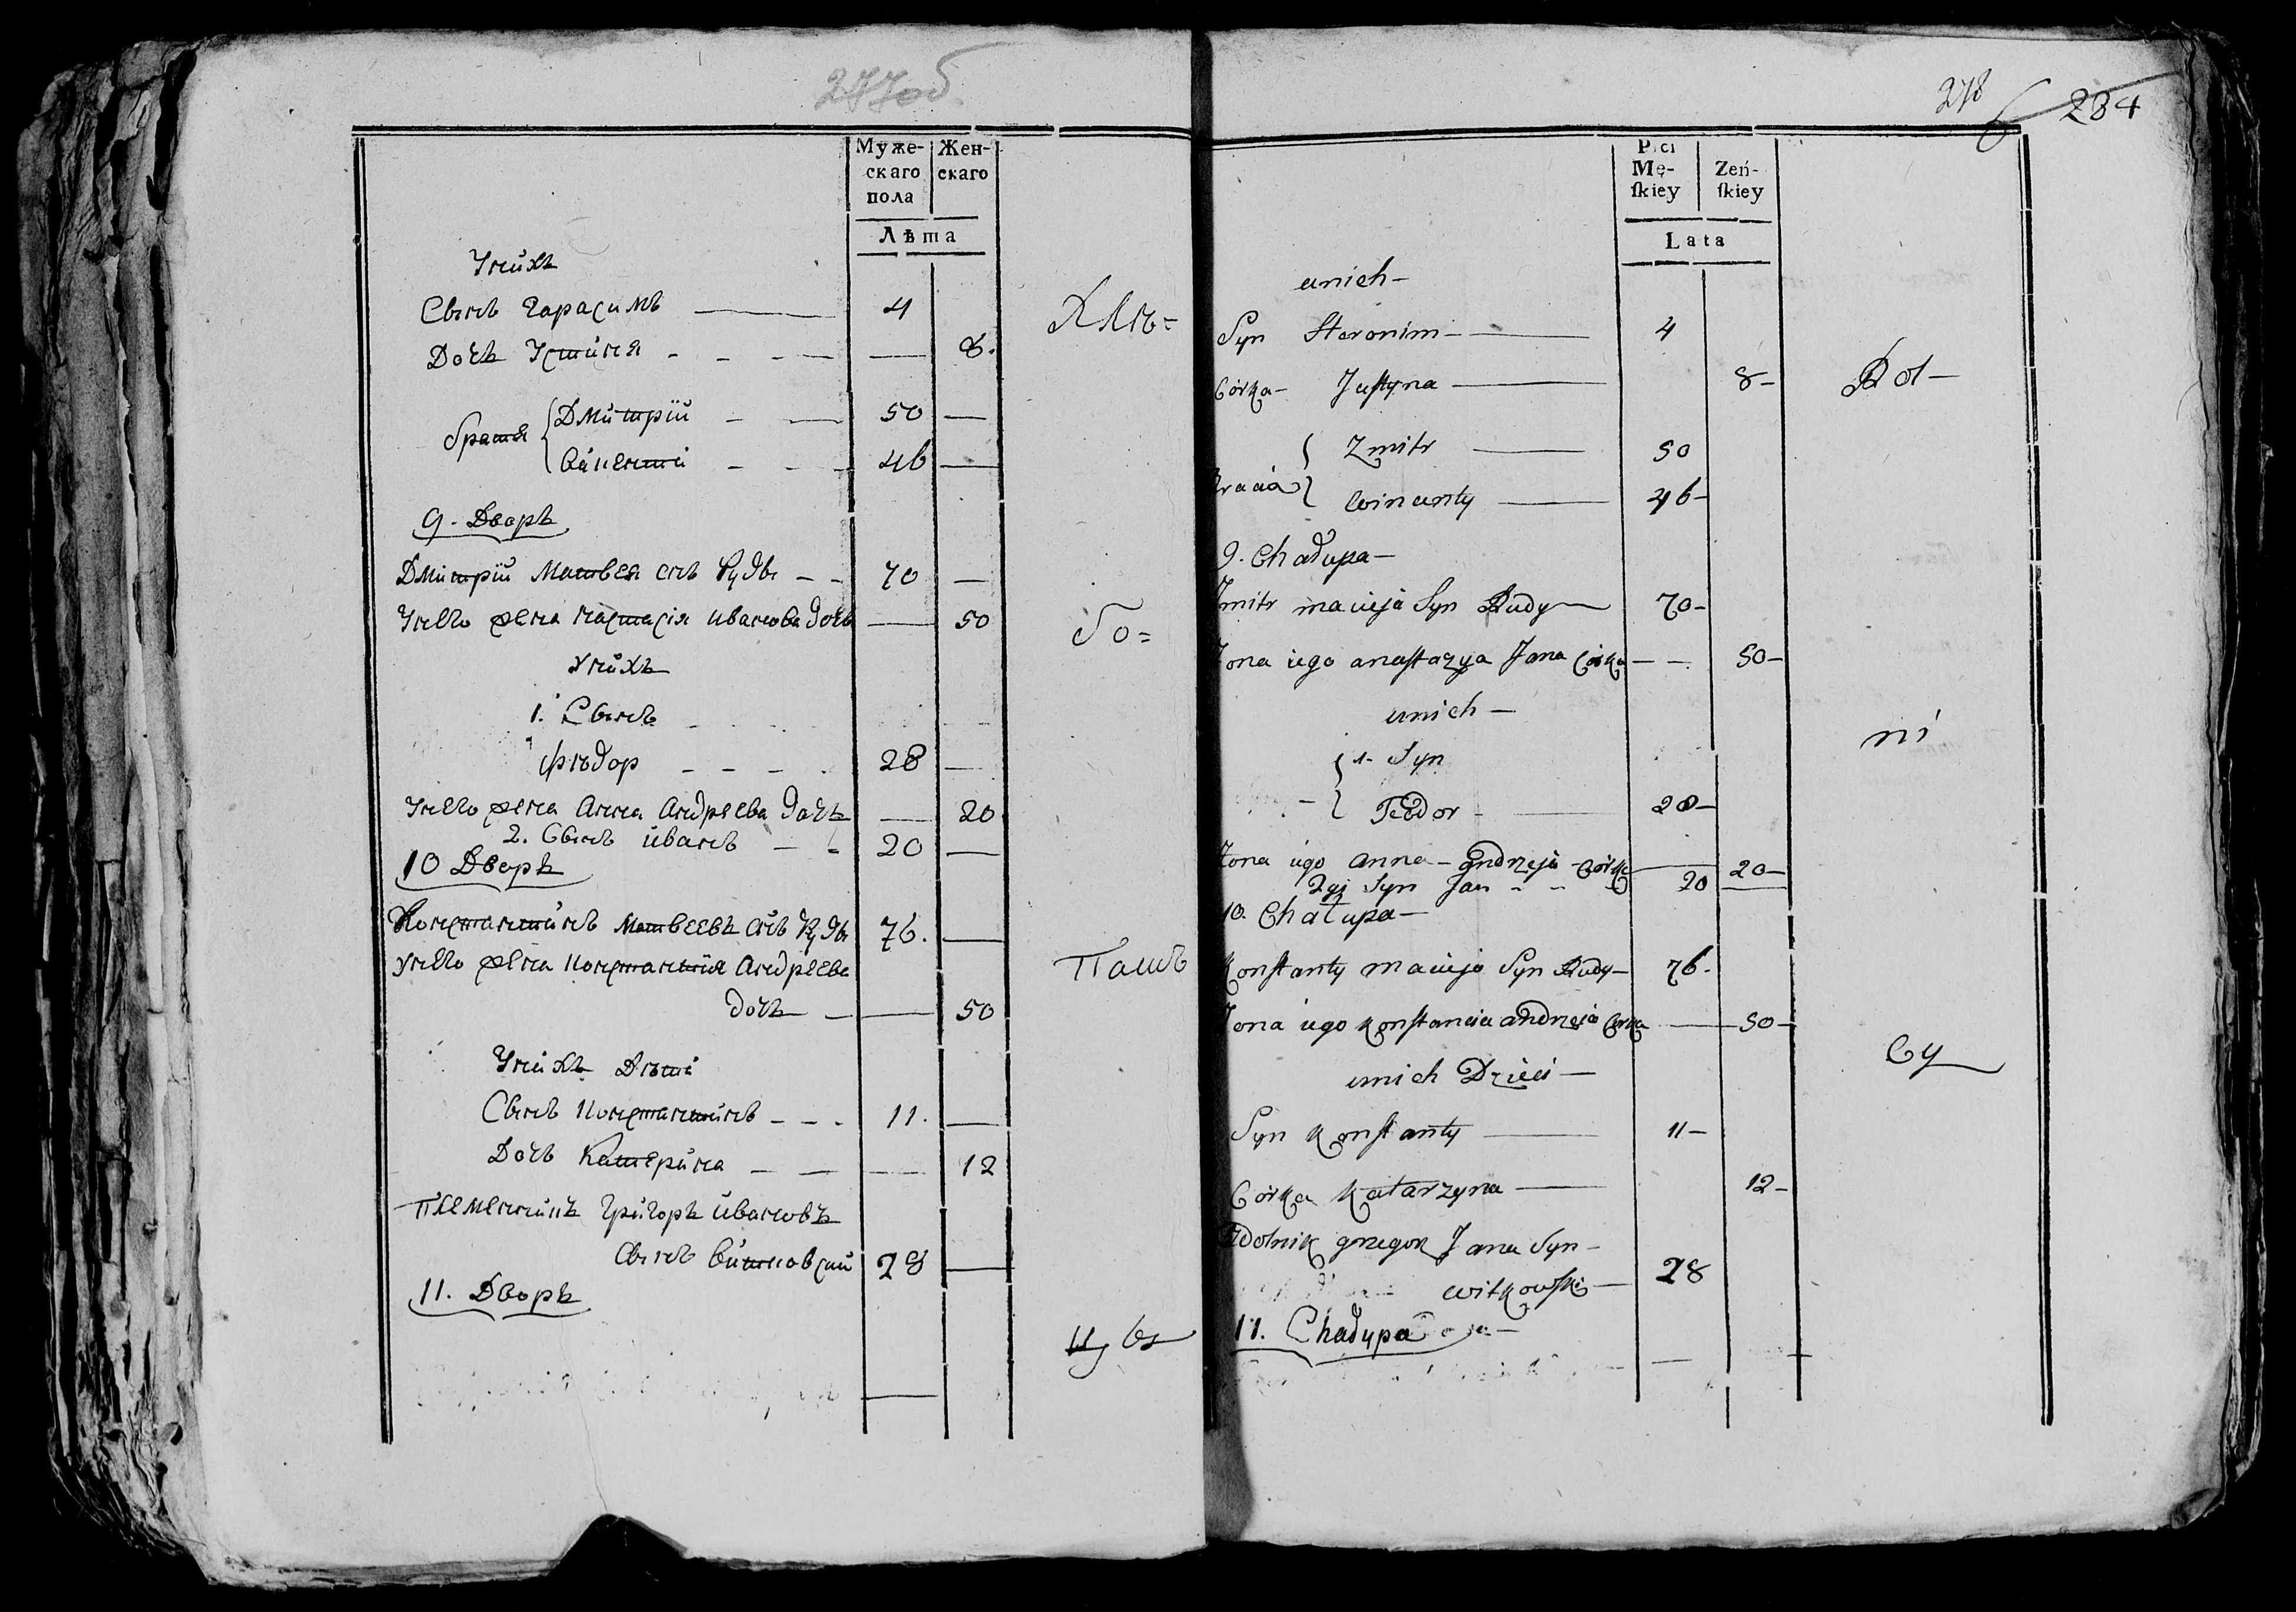 277об
Муже-
скаго
пола
Жен-
скаго
Лѣта
Унихъ
Сынъ Гарасимъ 4
Дочь Устиня 8.
братя { Дмитрїи 50
Викентиi 46
9. Дворъ
Дмитрїи Матвея снъ Руды 70
Унего жена Настасiя Иванова дочь 50
Унихъ
1. Сынъ
Фѣдор 28
Унего жена Анна Андреева дочь 20
2. Сынъ Иванъ 20
10 Дворъ
Константинъ Матвеевъ снъ Руды 76.
Унего жена Константiя Андреева
дочь 50
Унихъ Дѣти
Сынъ Константинъ 11.
Дочь Катерина 12
Племенникъ Григоръ Ивановъ
Сынъ Витковскии 28
11. Дворъ
бо=
278
284
Płci
Mę-
ſkiey
Zeń-
ſkiey
Lata
unich
Syn Heronim 4
Córka Juſtyna 8
Bracia { Zmitr 50
Winienty 46
9. Chałupa
Zmitr macieja Syn Rudy 70
Zona iego anaſtazya Jana Córka 50
unich
1. Syn
Teodor 28
Zona iego anna andrzeja Córka 20
2gi Syn Jan 20
10. Chałupa
Konſtanty macieja Syn Rudy 76.
Zona iego Konſtancia andrzeja Córka 50
unich Dzieci
Syn Konſtanty 11
Córka Katarzyna 12
Zdolnik grzegorz Jana Syn
witkowſki 28
11. Chałupa
Rot
ni
cy